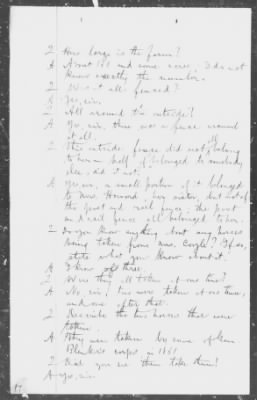 Q How large is the farm?
A About 181 and some acres. I do not
know exactly the number.
Q Was it all fenced?
A Yes, sir.
Q All around the outside?
A Yes, sir, there was a fence around
it all.
Q The outside fence did not belong
to her on half, it belonged to somebody
else, did it not.
A Yes, sir, a small portion of it belonged
to Mrs. Howard, her sister, but out of
the post and rail fence, the post
and rail fence all belonged to her.
Q Do you know anything about any horses
being taken from Mrs. Coryle? If so,
state what you know about it.
A I know of three.
Q Were they all taken at one time?
A No, sir, two were taken at one time,
and one after that.
Q Describe the two horses that were
taken.
A They were taken by some of Gen.
Blenker's corps, in 1861
Q Did you see them take them?
A Yes, sir.